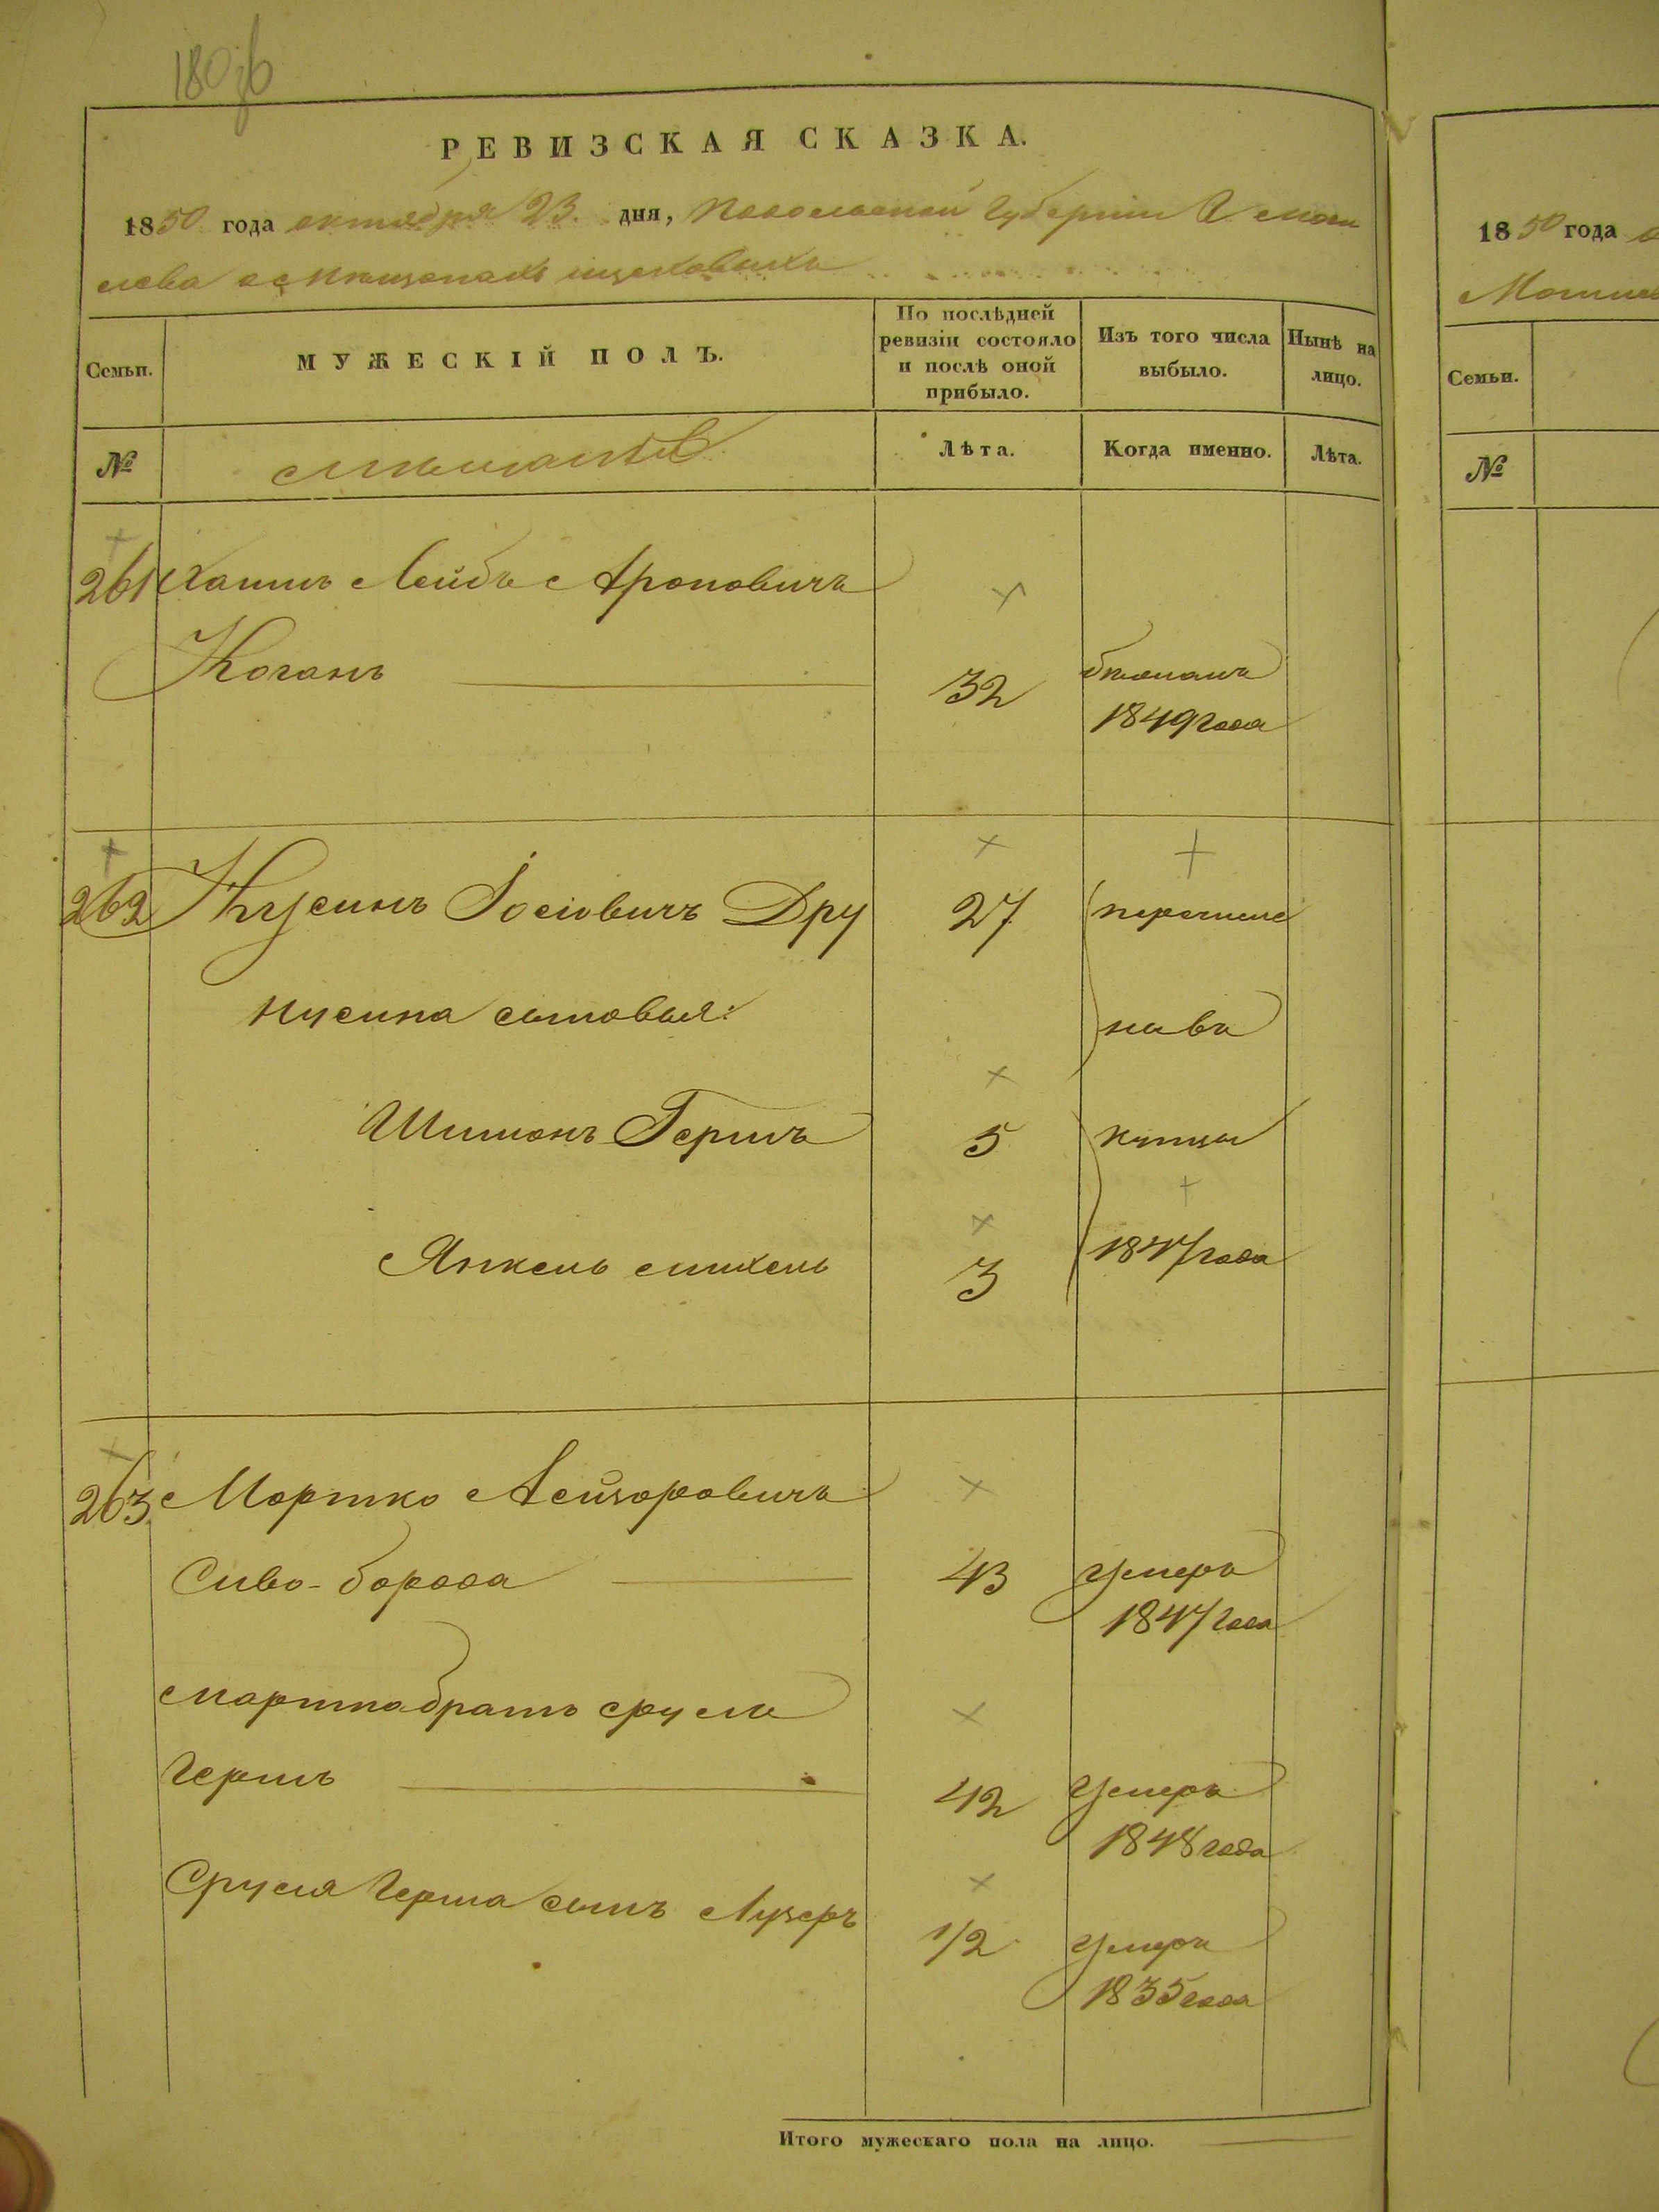 180зв
РЕВИЗСКАЯ СКАЗКА.
1850 года октября 23. дня, Подольской Губернiи Г. Моги
лева о Мѣщанахъ
Семьи.
МУЖЕСКIЙ ПОЛЪ.
По послѣдней ревизiи состояло и послѣ оной прибыло.
Изъ того числа выбыло.
Нынѣ на лицо.
№
Мѣщанъ
Лѣта.
Когда именно.
Лѣта.
261 Хаимъ Лейбъ Ароновичъ
Коганъ 32 бѣжалъ
1849 года
262 Нусинъ Iосiовичъ Дру 27 перечисле
Нусина сыновья: нъ въ
Шимонъ Гершъ 5 купцы
Янкель Михель 3 1847 года
263 Мортко Лейзоровичъ
Сиво-борода 43 Умеръ
1847 года
Мортка братъ Сруль
Гершъ 42 Умеръ
1848 года
Сруля Герша сынъ Лузеръ 1/2 Умеръ
1835 года
Итого мужескаго пола на лицо.
1850 года
Могиле
Семьи.
№